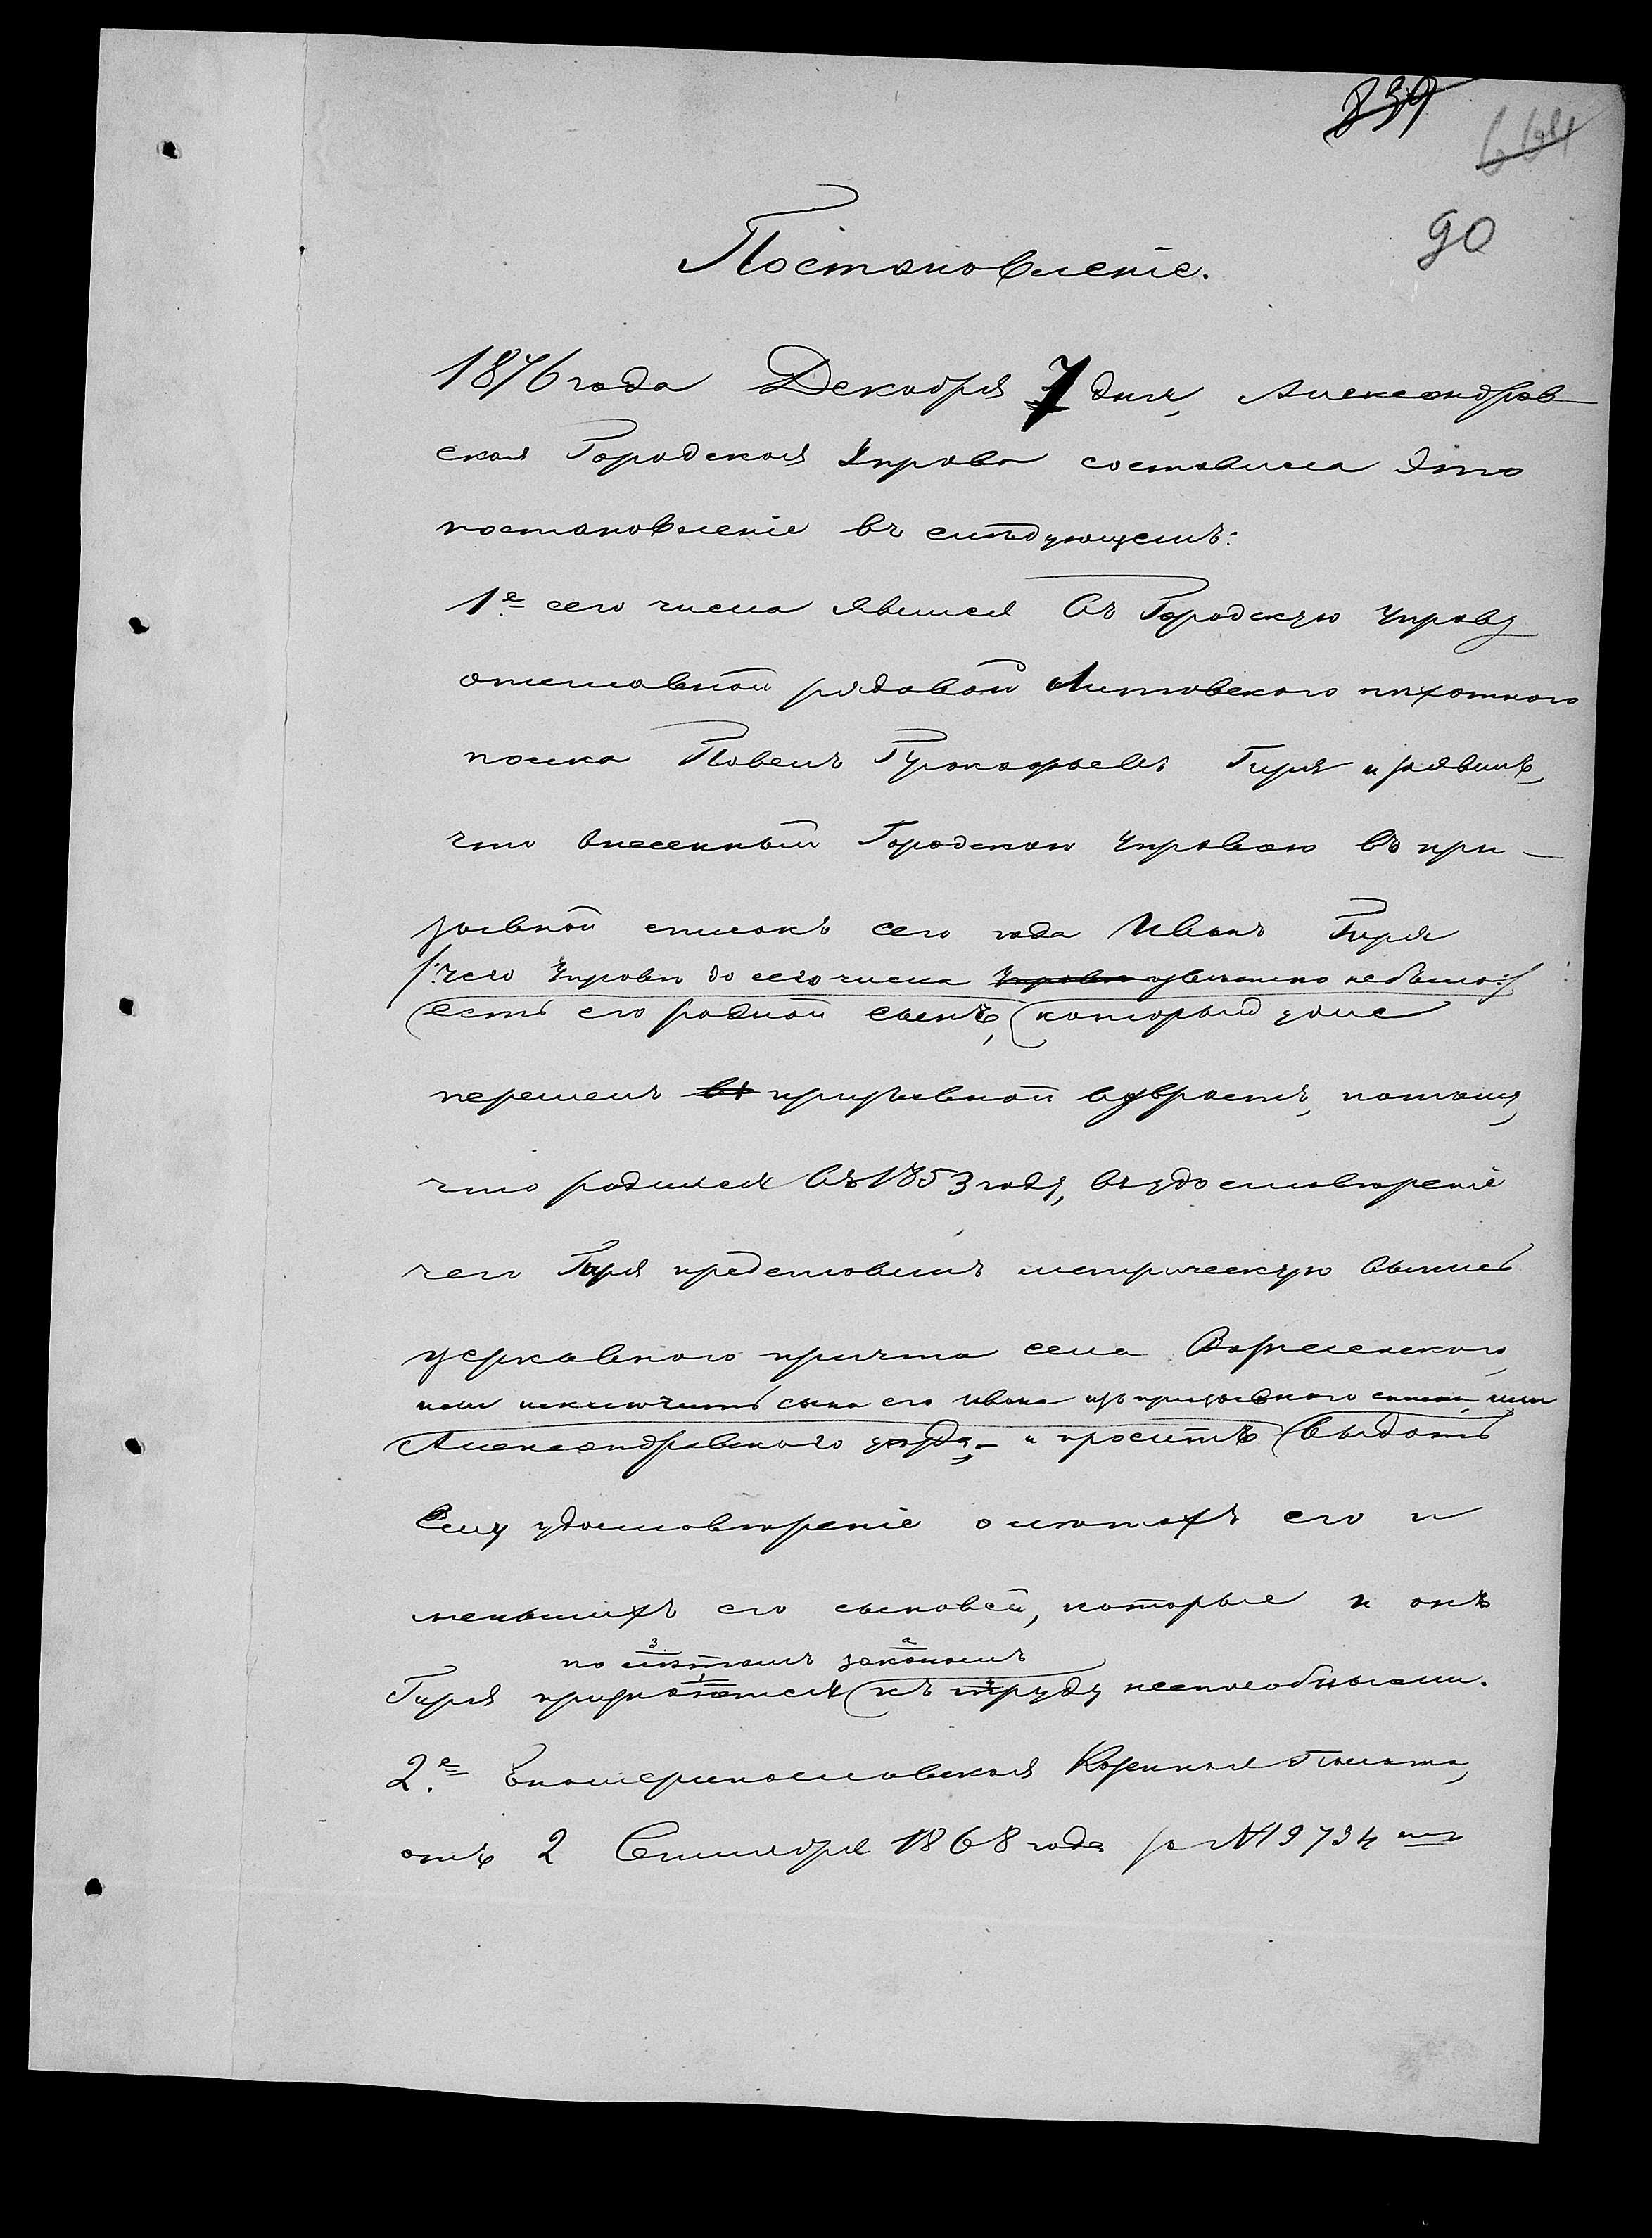 839
664
90
Постановленіе.
1876 года Декабря 7 дня, Александров-
ская Городская Управа составила это
постановленіе въ слѣдующемъ:
1е. сего числа явился въ Городскую Управу
отставной рядовой Литовскаго пѣхотнаго
полка Павелъ Прокофьевъ Гиря и заявилъ,
что внесенный Городскою Управою въ при-
зывной списокъ сего года Иванъ Гиря
/:чего Управѣ до сего числа Управѣ извѣстно небыло:/
есть его родной сынъ, который уже
перешелъ въ призывной возрастъ, потому,
что родился въ 1853 году, въ удостовѣреніе
чего Гиря представилъ метрическую выпись
церковнаго причта села Вознесенскаго,
исключить сына его Ивана изъ призывнаго списка, или
Александровскаго уѣзда,- и проситъ выдать
Ему удостовѣреніе о лѣтахъ его и
меньшихъ его сыновей, которые и онъ
по лѣтамъ закономъ
Гиря признаются къ труду неспособными.
2.е Екатеринославская Казенная Палата,
отъ 2 Сентября 1868 года за № 9734